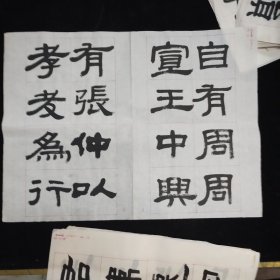 自有周周
宣王中興
有張仲以
孝友為行